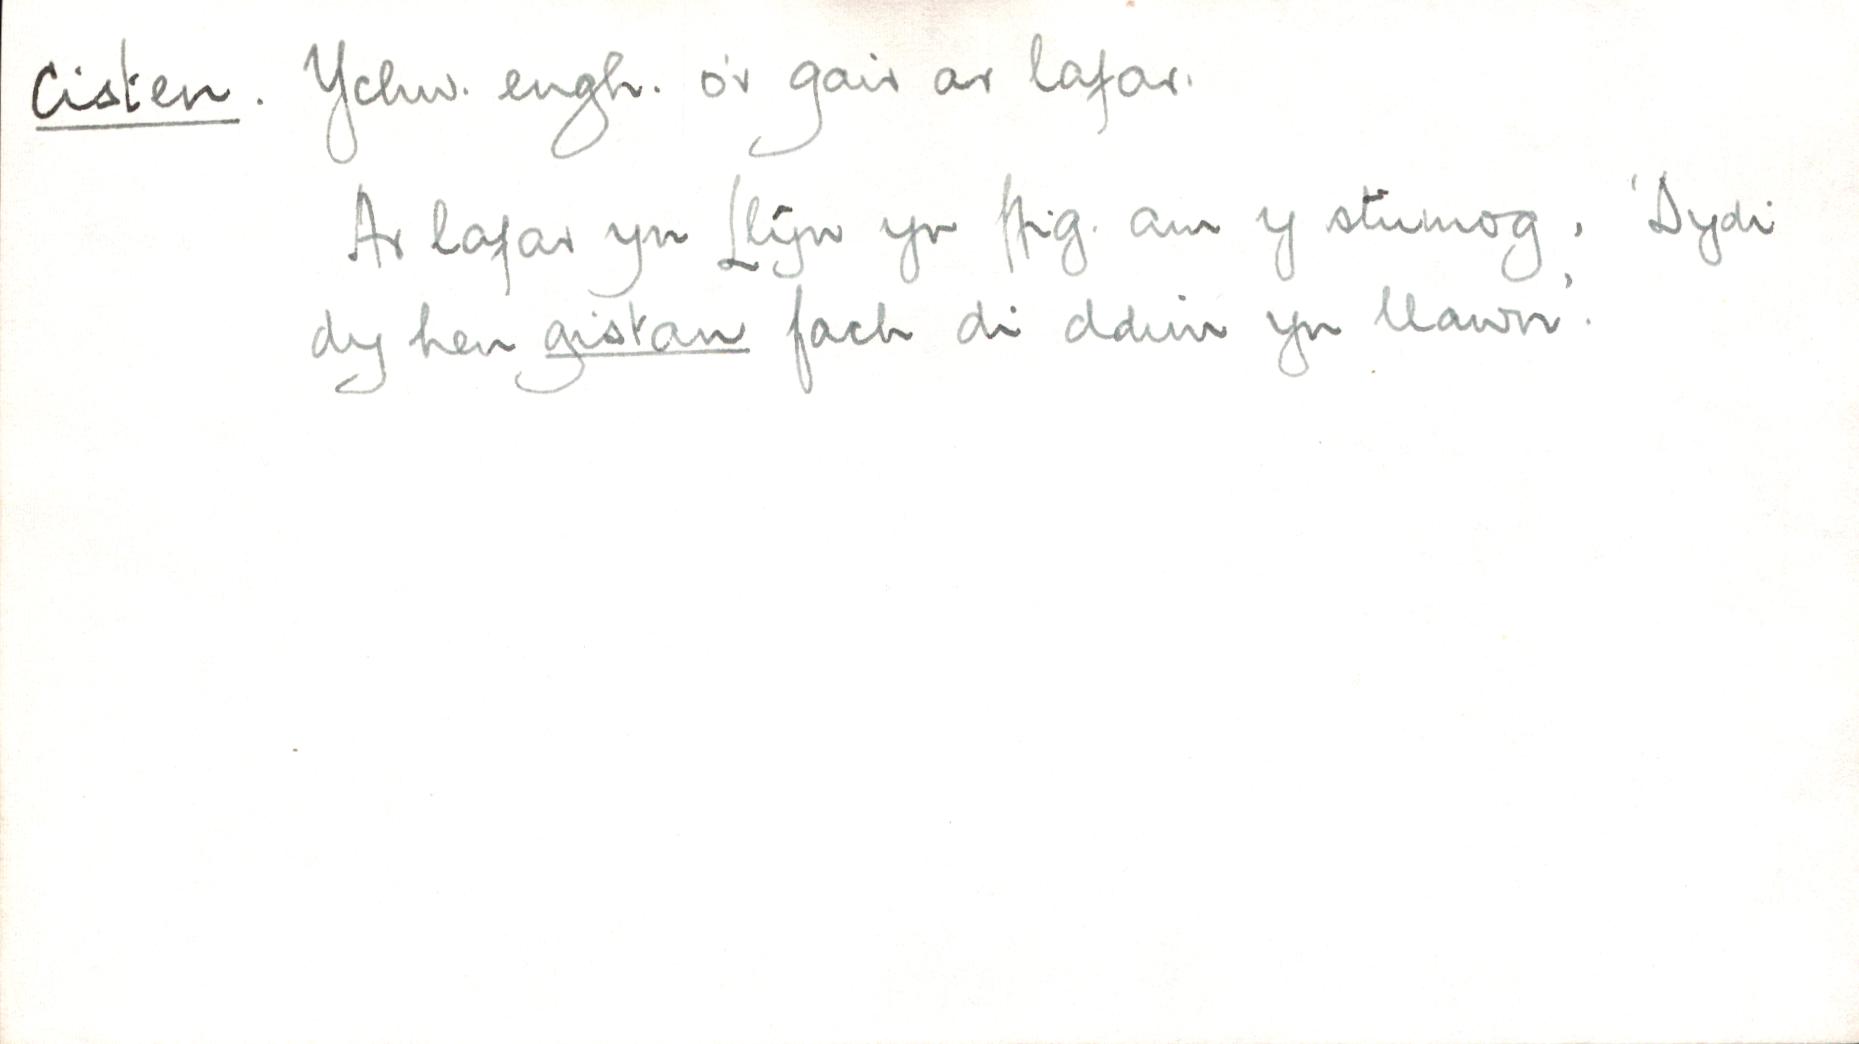 Cisten. Ychw. engh. o'r gair ar lafar.
Ar lafar yn Llŷn yn ffig. am y stumog, 'Dydi
dy hen gistan fach di ddim yn llawn'.